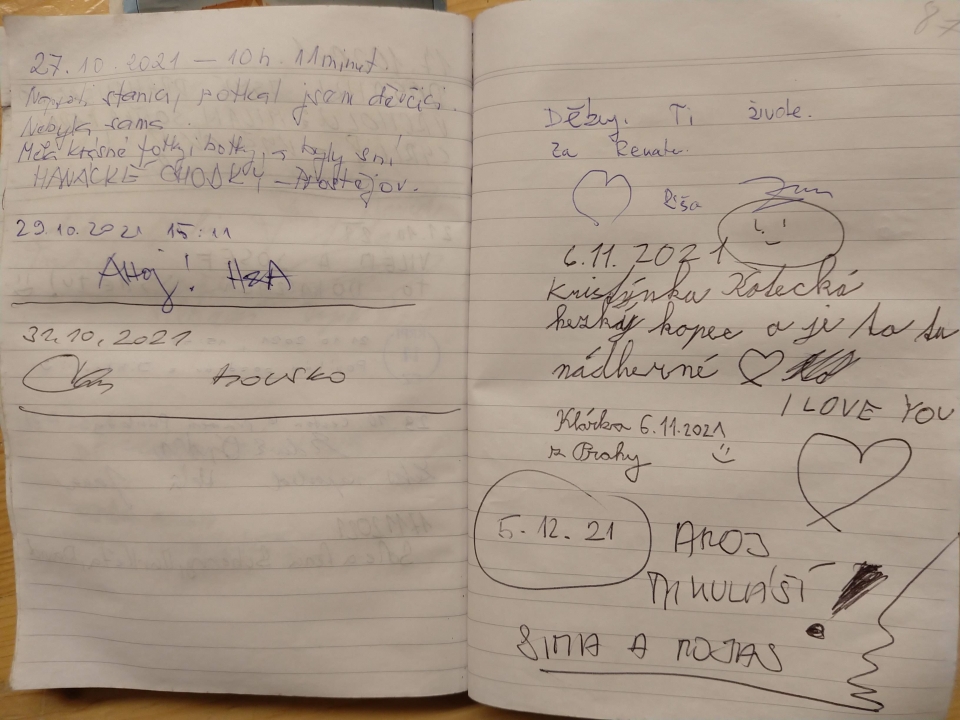 27.10.2021 – 10h. 11minut
stanici, potkal jsem děvčici.
Nebyla sama.
Měla krásné fotky, botky, a byly s ní
HANÁCKÉ CHODKY, – Prostějov.
29.10.2021 15:11
AHOJ! H&A
31.10.2021
HOUSKO
87
Děkuji Ti živote.
Za Renatu.
Ríša
6.11.2021
Kristýnka Kotecká
hezký kopec a je to tu
nádherné
I LOVE YOU
Klárka 6.11.2021
z Prahy
5.12.21
AHOJ
MIKULÁŠI!
SIMA A MOJAS